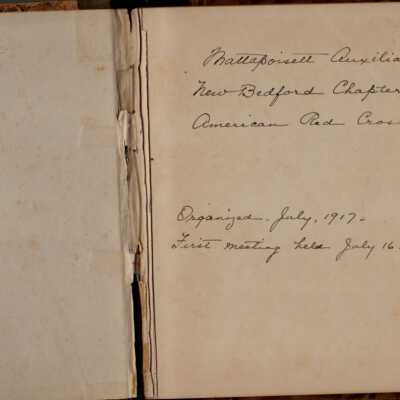 Mattapoisett Auxilia
New Bedford Chapter
American Red Cros
Organized. July, 1917.
First meeting held July 16.